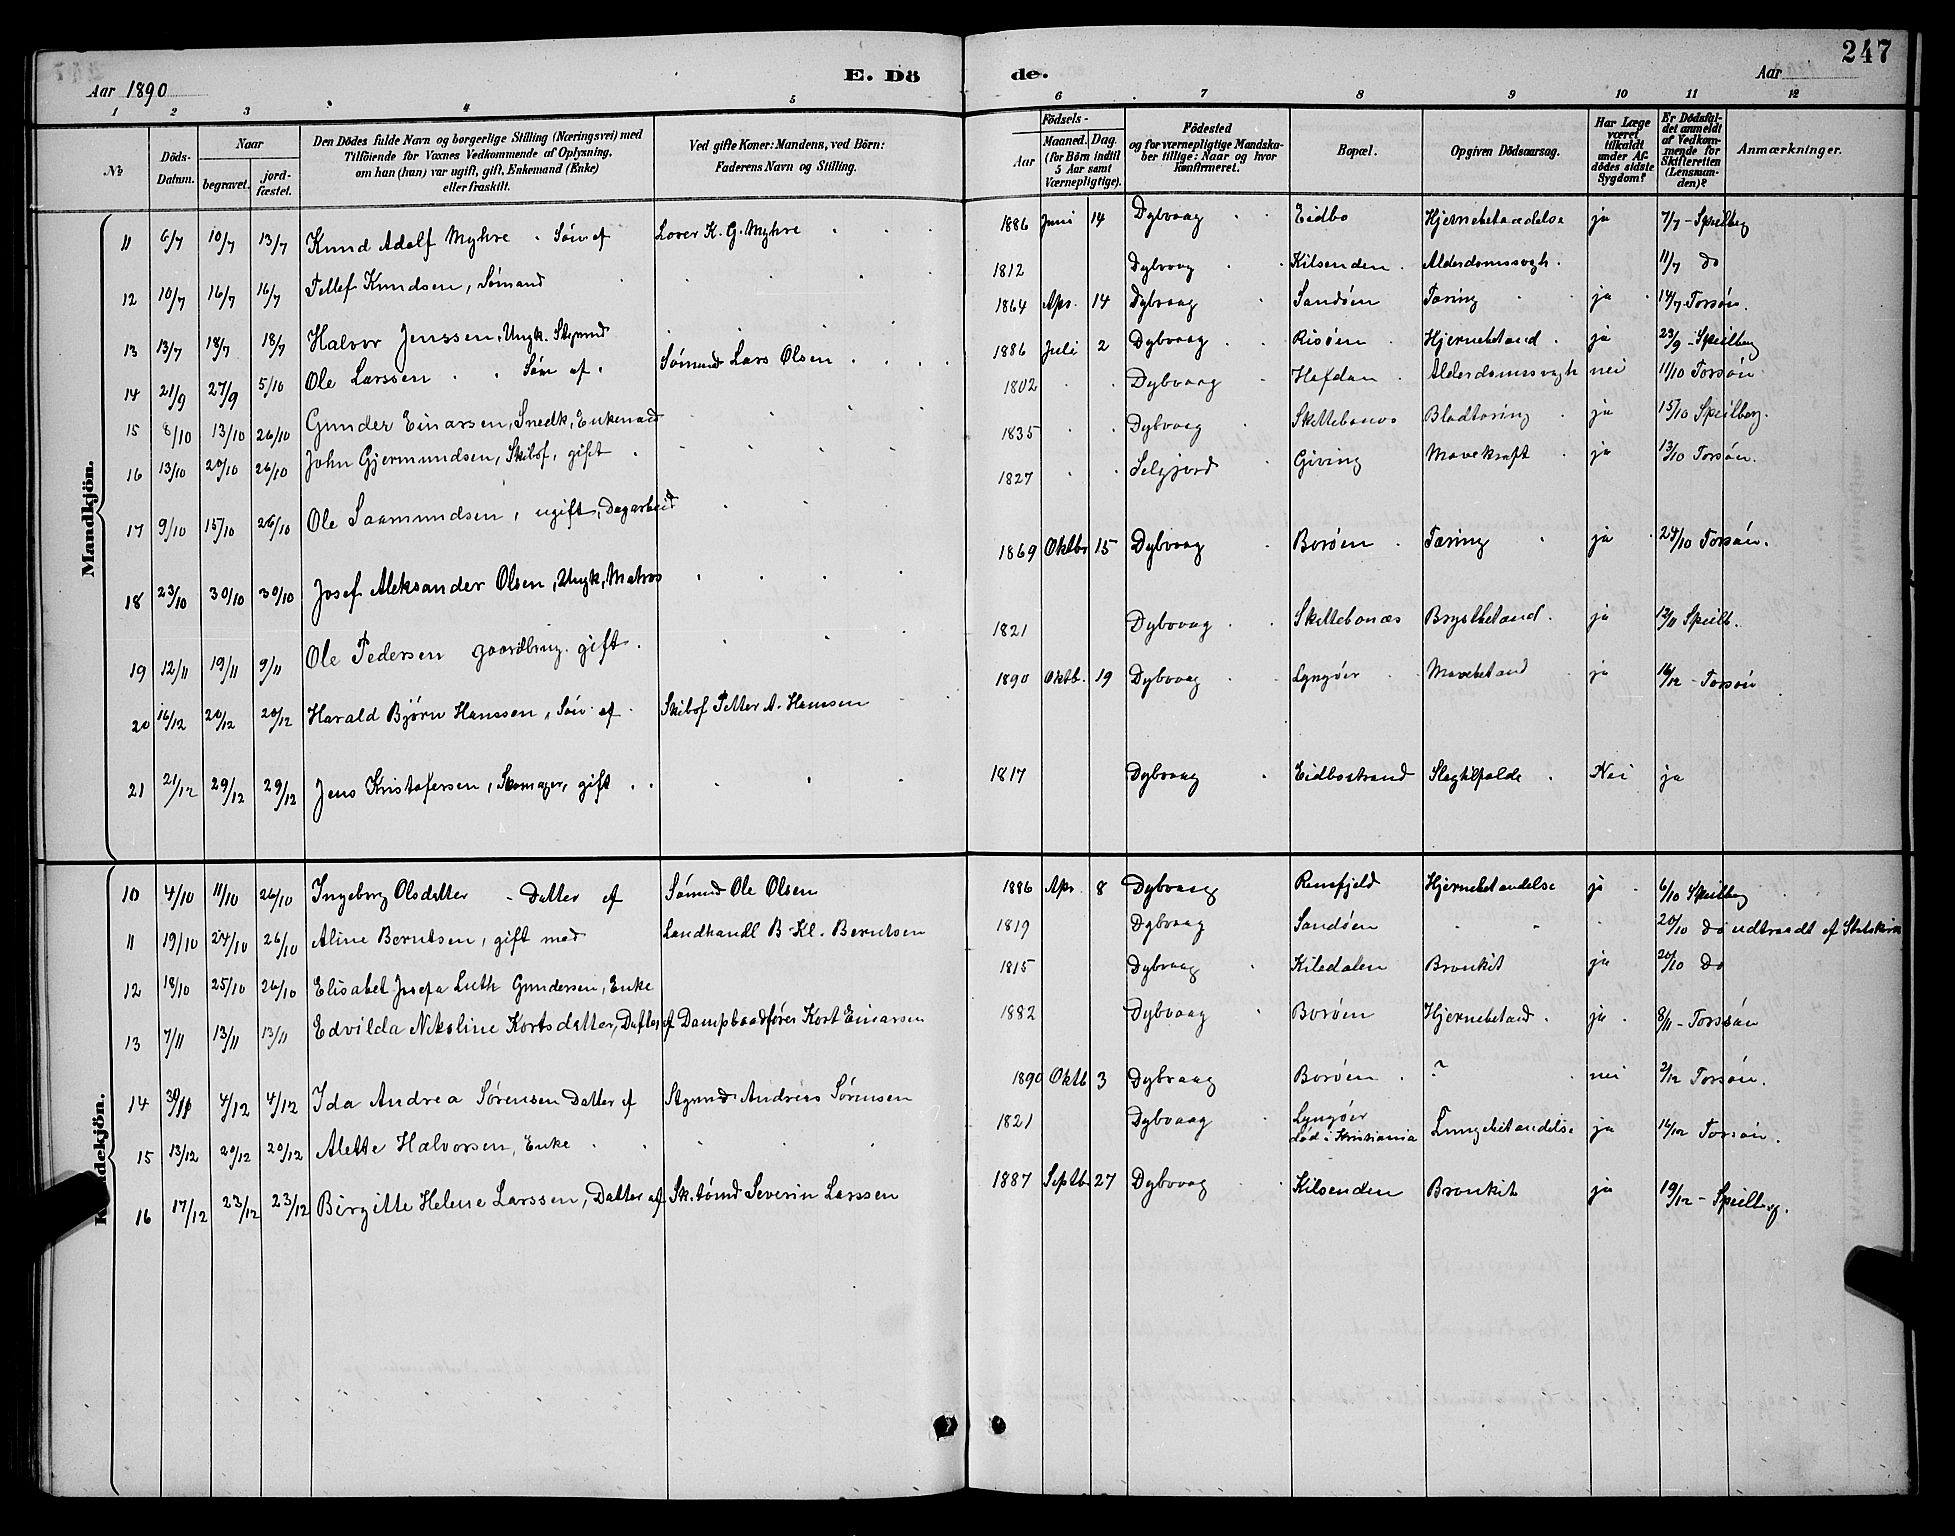 247
E. Döde.
Aar 1890
Aar
1 2 3 4 5 6 7 8 9 10 11 12
№
Döds-Datum.
Naar
begravet.
jord-fæstet.
Den Dödes fulde Navn og borgerlige Stilling (Næringsvei) med
Tilföiende for Voxnes Vedkommende af Oplysning,
om han (hun) var ugift, gift, Enkemand (Enke)
eller fraskilt.
Ved gifte Koner: Mandens, ved Börn:
Faderens Navn og Stilling.
Födsels-
Aar
Maaned. Dag.
(for Börn indtil
5 Aar samt
Værnepligtige).
Födested
og for værnepligtige Mandska-
ber tillige: Naar og hvor
konfirmeret.
Bopæl.
Opgiven Dödsaarsag.
Har Læge
været
tilkaldt
under Af-
dödes sidste
Sygdom?
Er Dödsfal-
det anmeldt
af Vedkom-
mende for
Skifteretten
(Lensman-
den)?
Anmærkninger.
Mandkjön.
11 6/7 10/7 13/7 Knud Adolf Myhre Søn af Lover K. G. Myhre 1886 Juni 14 Dybvaag Eidbo Hjernebetændelse ja 7/7 - Speilberg
12 10/7 16/7 16/7 Tellef Knudsen, Sømand 1812 Dybvaag Kilsenden Alderdomssvgh. 11/7 do
13 13/7 18/7 18/7 Halvor Jenssen, Ungk. Stymd 1864 Apr. 14 Dybvaag Sandøen Tæring ja 14/7 Torsøn.
14 21/9 27/9 5/10 Ole Larssen Søn af Sømand Lars Olsen 1886 Juli 2 Dybvaag Risøen Hjernebetænd. ja 23/9 - Speilberg
15 8/10 13/10 26/10 Gunder Einarsen, Snedk, Enkemand 1802 Dybvaag Hafdan Alderdomssvgh nei 11/10 Torsøn
16 13/10 20/10 26/10 John Gjermundsen, Skibsf, gift 1835 Dybvaag Skittebonæs Blodtæring ja 15/10 Speilberg.
17 9/10 15/10 26/10 Ole Saamundsen, ugift, Dagarbeid 1827 Seljord Giving Mavekræft ja 13/10 Torsøn.
18 23/10 30/10 30/10 Josef Aleksander Olsen, Ungk, Matros 1869 Oktbr 15 Dybvaag Borøen Tæring ja 24/10 Torsøn.
19 12/11 19/11 9/11 Ole Pedersen gaardbrug. gift. 1821 Dybvaag Skittebonæs Brystbetænd. ja 12/11 Speilb.
20 16/12 20/12 20/12 Harald Bjørn Hanssen, Søn af Skibsf Petter A. Hanssen 1890 Oktb. 19 Dybvaag Lyngøer Mavebetænd ja 16/12 - Torsøn
21 21/12 29/12 29/12 Jens Kristofersen, Skomager, gift 1817 Dybvaag Eidbostrand Slagtilfælde Nei ja
Kvindekjön.
10 4/10 11/10 26/10 Ingeborg Olsdatter - Datter af Sømand Ole Olsen 1886 Apr. 8 Dybvaag Rensfjeld Hjernebetændelse ja 6/10 Speilberg
11 19/10 24/10 26/10 Aline Berntsen, gift med Landhandl B. Kl. Berntsen 1819 Dybvaag Sandøen 20/10 Do udtraadt af Statskirk
12 18/10 25/10 26/10 Elisabet Josefa Luth Gundersen, Enke 1815 Dybvaag Kiledalen Bronkit ja 20/10 Do
13 7/11 13/11 13/11 Edvilda Nikoline Kortsdatter, Datter af Dampbaadfører Kort Einarsen 1882 Dybvaag Borøen Hjernebetænd. ja 8/11 - Torssøn
14 30/11 4/12 4/12 Ida Andrea Sørensen Datter af Stymd Andreas Sørensen 1890 Oktb 3 Dybvaag Borøen ? nei 2/12 Torsøn.
15 13/12 20/12 20/12 Alette Halvorsen, Enke 1821 Dybvaag Lyngøer død i Kristiania Lungebetændelse ja 16/12 Torsøn.
16 17/12 23/12 23/12 Birgitte Helene Larssen, Datter af Sk.tømd Severin Larssen 1887 Septb. 27 Dybvaag Kilsenden Bronkit ja 19/12 - Speilberg.